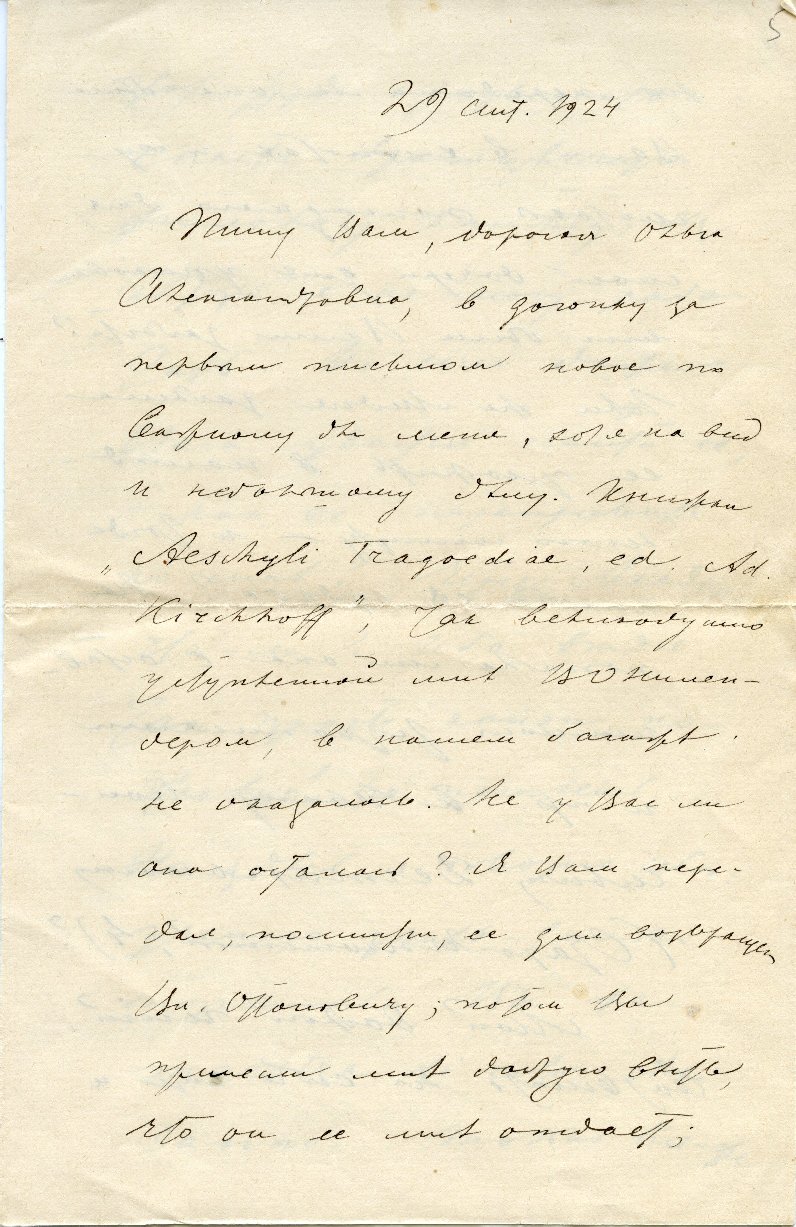 5
29 сент. 1924
Пишу Вам, дорогая Ольга
Александровна, в догонку за
первым письмом новое по
важному для меня, хотя на вид
и небольшому делу. Книжки
„Aeschyli Tragoediae, ed. Ad.
Kirchhoff", так великодушно
уступленной мнѣ ВО Нилен-
дером, в нашем багажѣ
не оказалось. Не у Вас ли
она осталась? Я Вам пере-
дал, помнится, ее для возвращен
Вл. Оттоновичу; потом Вы
принесли мнѣ добрую вѣсть,
что он ее мнѣ отдает;